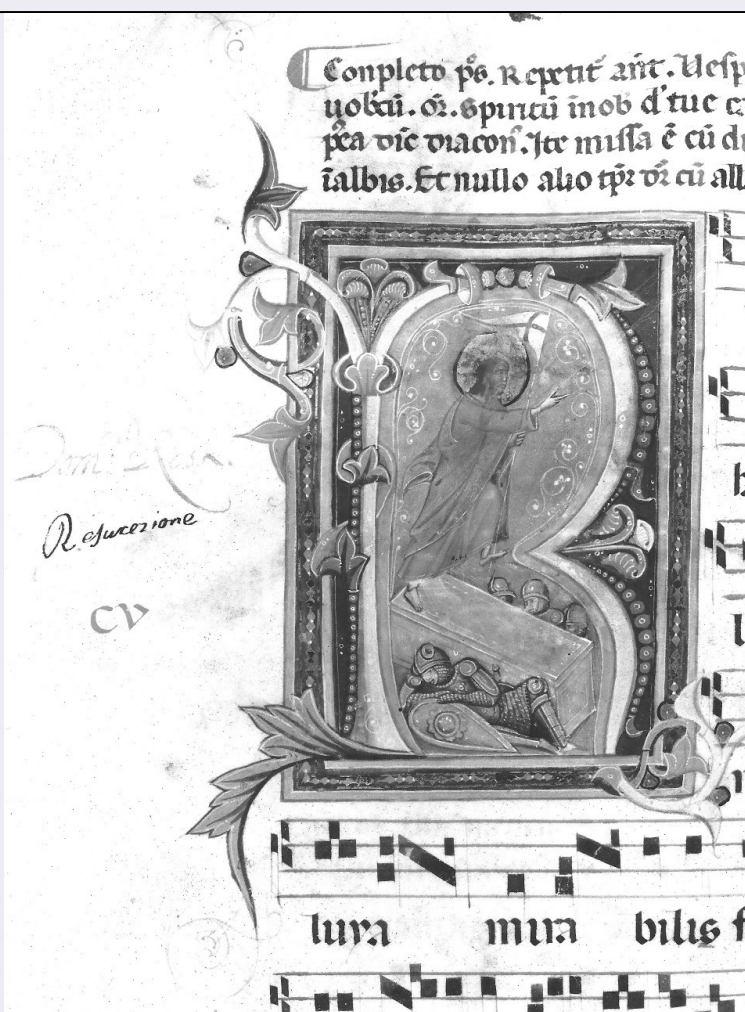 Conpleto ps̄. Repetit̄ an̄t. Vesp
uobcū. or̄. Spiritū in nob d'tue c
p̄ca dic̄ diacoñ. Ite missa ē cū d
ī albis. Et nullo alio tp̄r dr̄ cū all
R
Dom. Res.
Resurezione
CV
b
l
luya mira bilis f